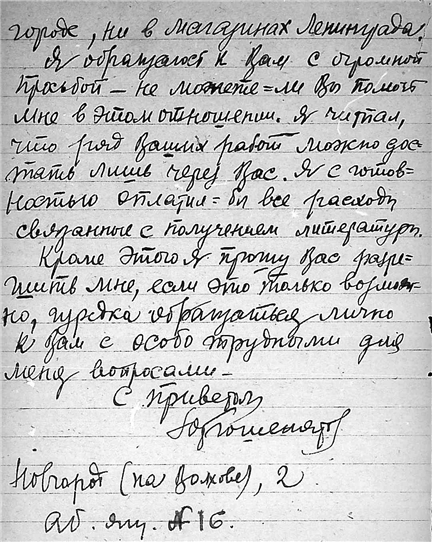 городе, ни в магазинах Ленинграда.
Я обращаюсь к Вам с огромной
просьбой – не можете=ли Вы помочь
мне в этом отношении. Я читал,
что ряд Ваших работ можно дос-
тать лишь через Вас. Я с готов=
ностью оплатил=бы все расходы
связанные с получением литературы.
Кроме этого я прошу Вас разре-
шить мне, если это только возмож-
но, изредка обращаться лично
к Вам с особо трудными для
меня вопросами –
С приветом
Новгород (на Волхове), 2
аб. ящ. № 16.